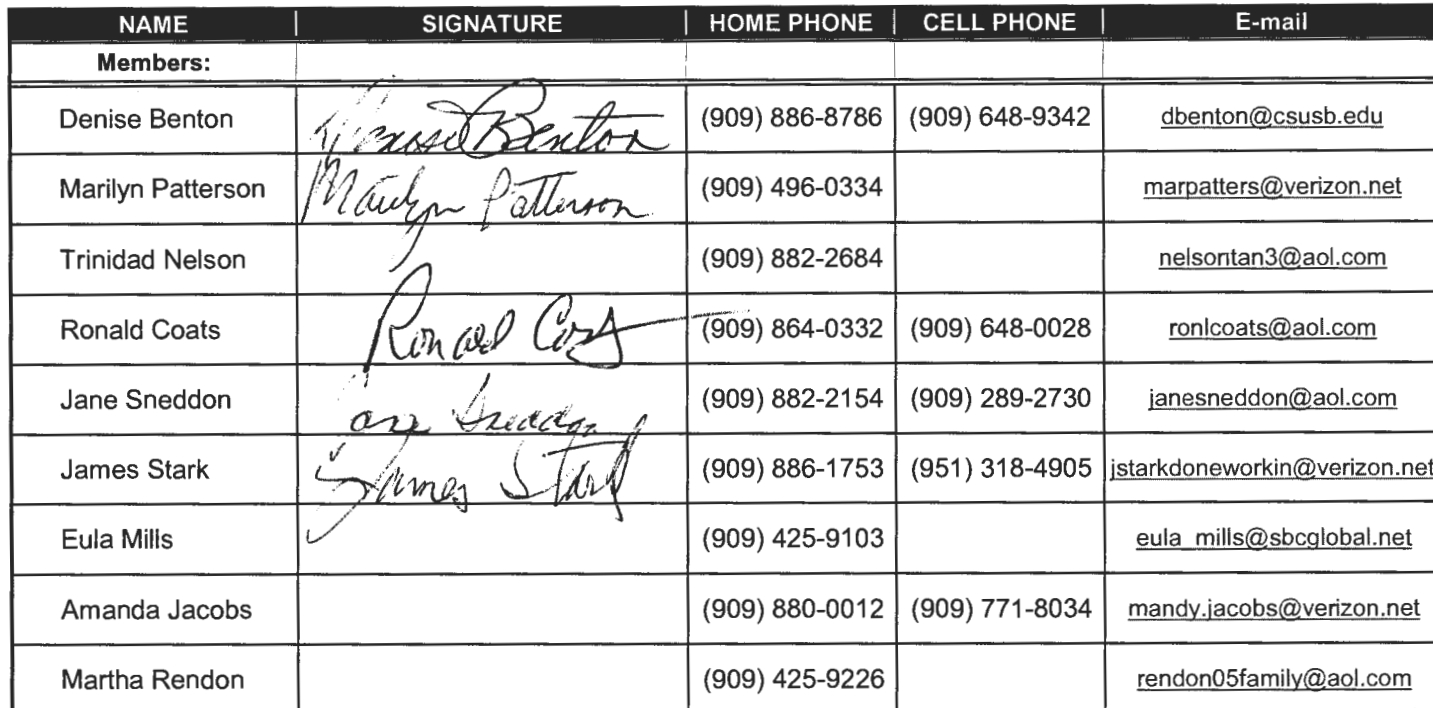 NAME SIGNATURE HOME PHONE CELL PHONE E-mail
Members:
Denise Benton Denise Benton (909) 886-8786 (909) 648-9342 dbenton@csusb.edu
Marilyn Patterson Marilyn Patterson (909) 496-0334 marpatters@verizon.net
Trinidad Nelson (909) 882-2684 nelsontan3@aol.com
Ronald Coats Ronald Coats (909) 864-0332 (909) 648-0028 ronlcoats@aol.com
Jane Sneddon Jane Sneddon (909) 882-2154 (909) 289-2730 janesneddon@aol.com
James Stark James Stark (909) 886-1753 (951) 318-4905 jstarkdoneworkin@verizon.net
Eula Mills (909) 425-9103 eula_mills@sbcglobal.net
Amanda Jacobs (909) 880-0012 (909) 771-8034 mandy.jacobs@verizon.net
Martha Rendon (909) 425-9226 rendon05family@aol.com